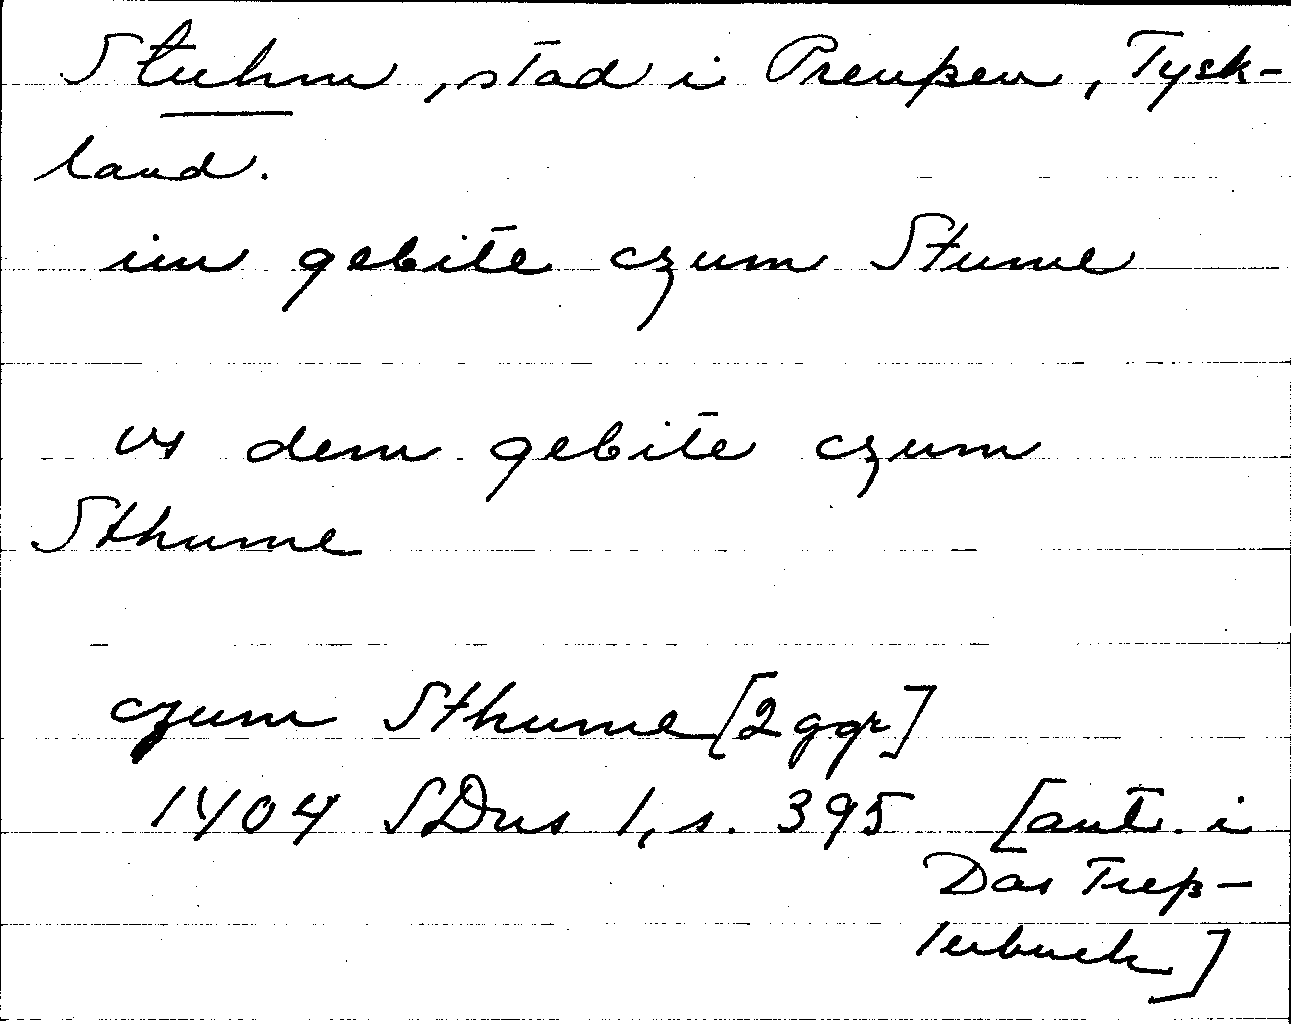 Stuhm, stad i Preußen, Tysk-
land.
im gebite czum Stume
vs dem gebite czum
Sthume
czum Sthume [2 ggr]
1404 SDns 1, s. 395 [ant. i
Das Treß-
lerbuch]